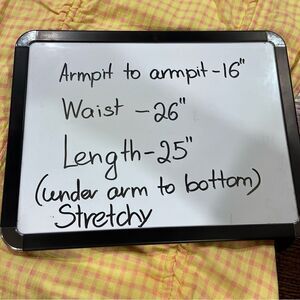 Armpit to armpit-16"
Waist - 26"
Length-25"
(under arm to bottom)
Stretchy